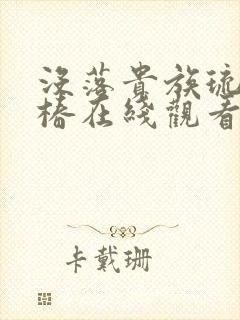 沒落貴族琉
椿在綫觀看
卡戴珊